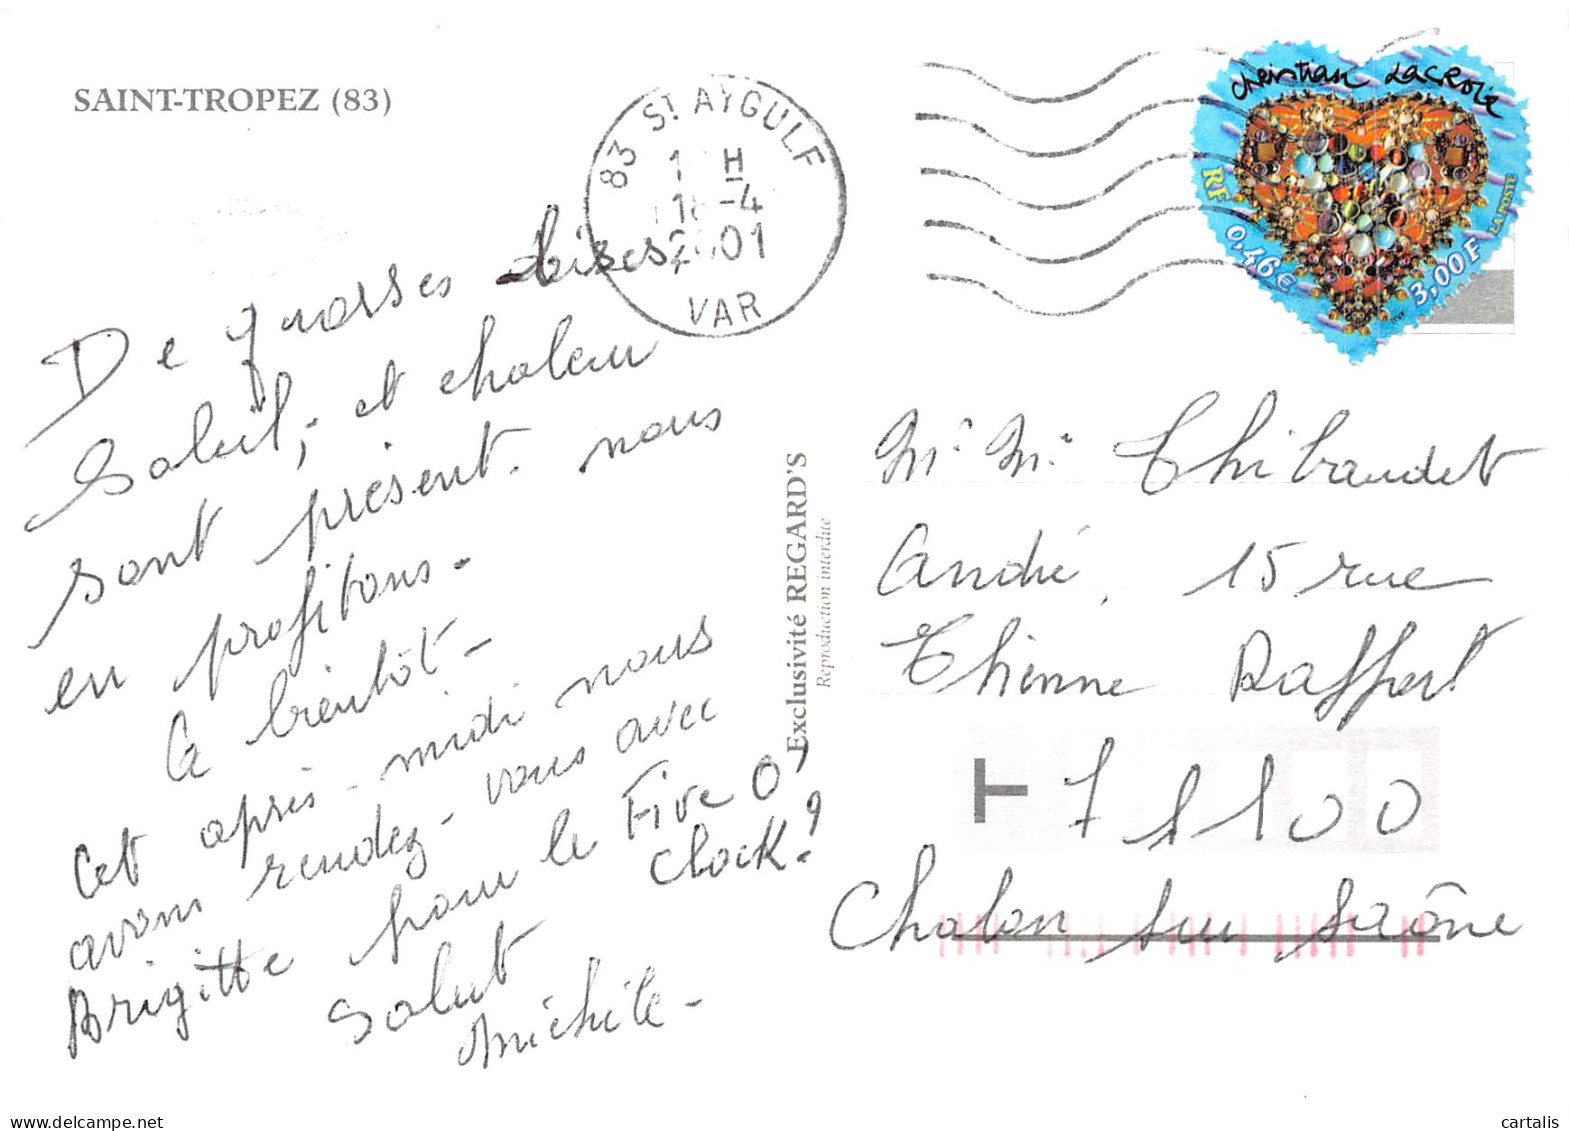 SAINT-TROPEZ (83)
83 ST AYGULF
1 H
18-4
2001
VAR
Christian Lacroix
RF
0,46€
3,00F
LA POSTE
De grosses bises
Soleil, et chaleur
sont présent. nous
en profitons.
A bientôt-
Cet après-midi nous
avons rendez-vous avec
Brigitte pour le Five O'
Clock!
Salut
Michèle-
Exclusivité REGARD'S
Reproduction interdite
Mr. Mr. Thibaudet
André, 15 rue
Thienne Raffort
T 71100
Chalon sur Saône
cartalis